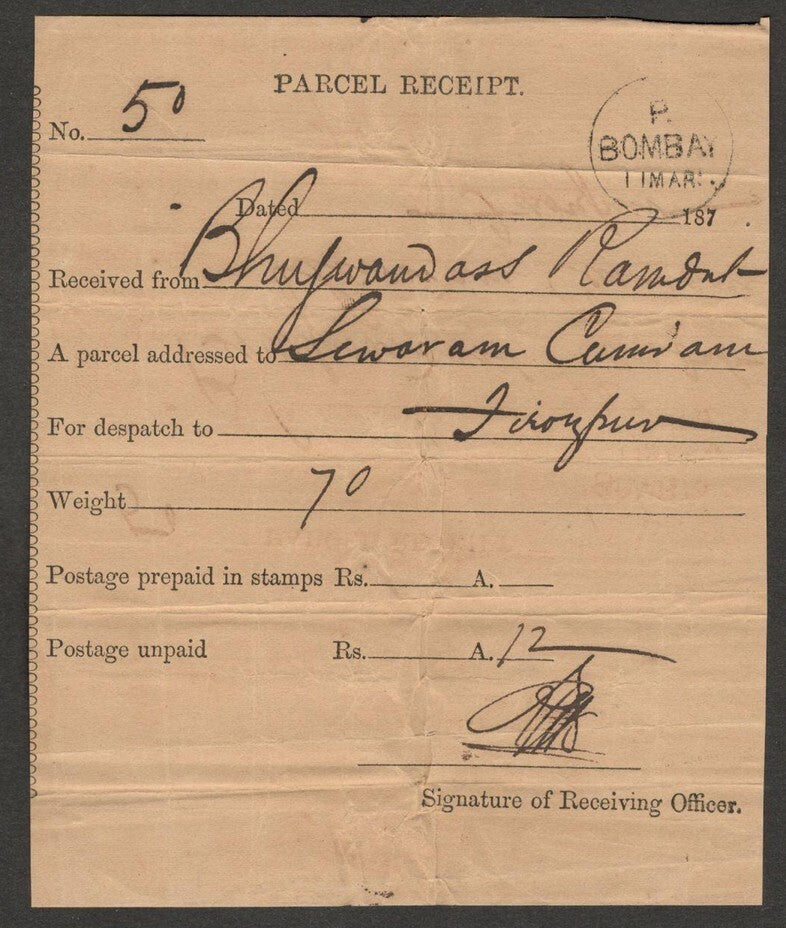 PARCEL RECEIPT.
No. 50
P.
BOMBAY
11 MAR
Dated 187
Received from Bhugwandass Ramdut
A parcel addressed to Sewaram
For despatch to
Weight 70
Postage prepaid in stamps Rs. A.
Postage unpaid Rs. A. 12
Signature of Receiving Officer.